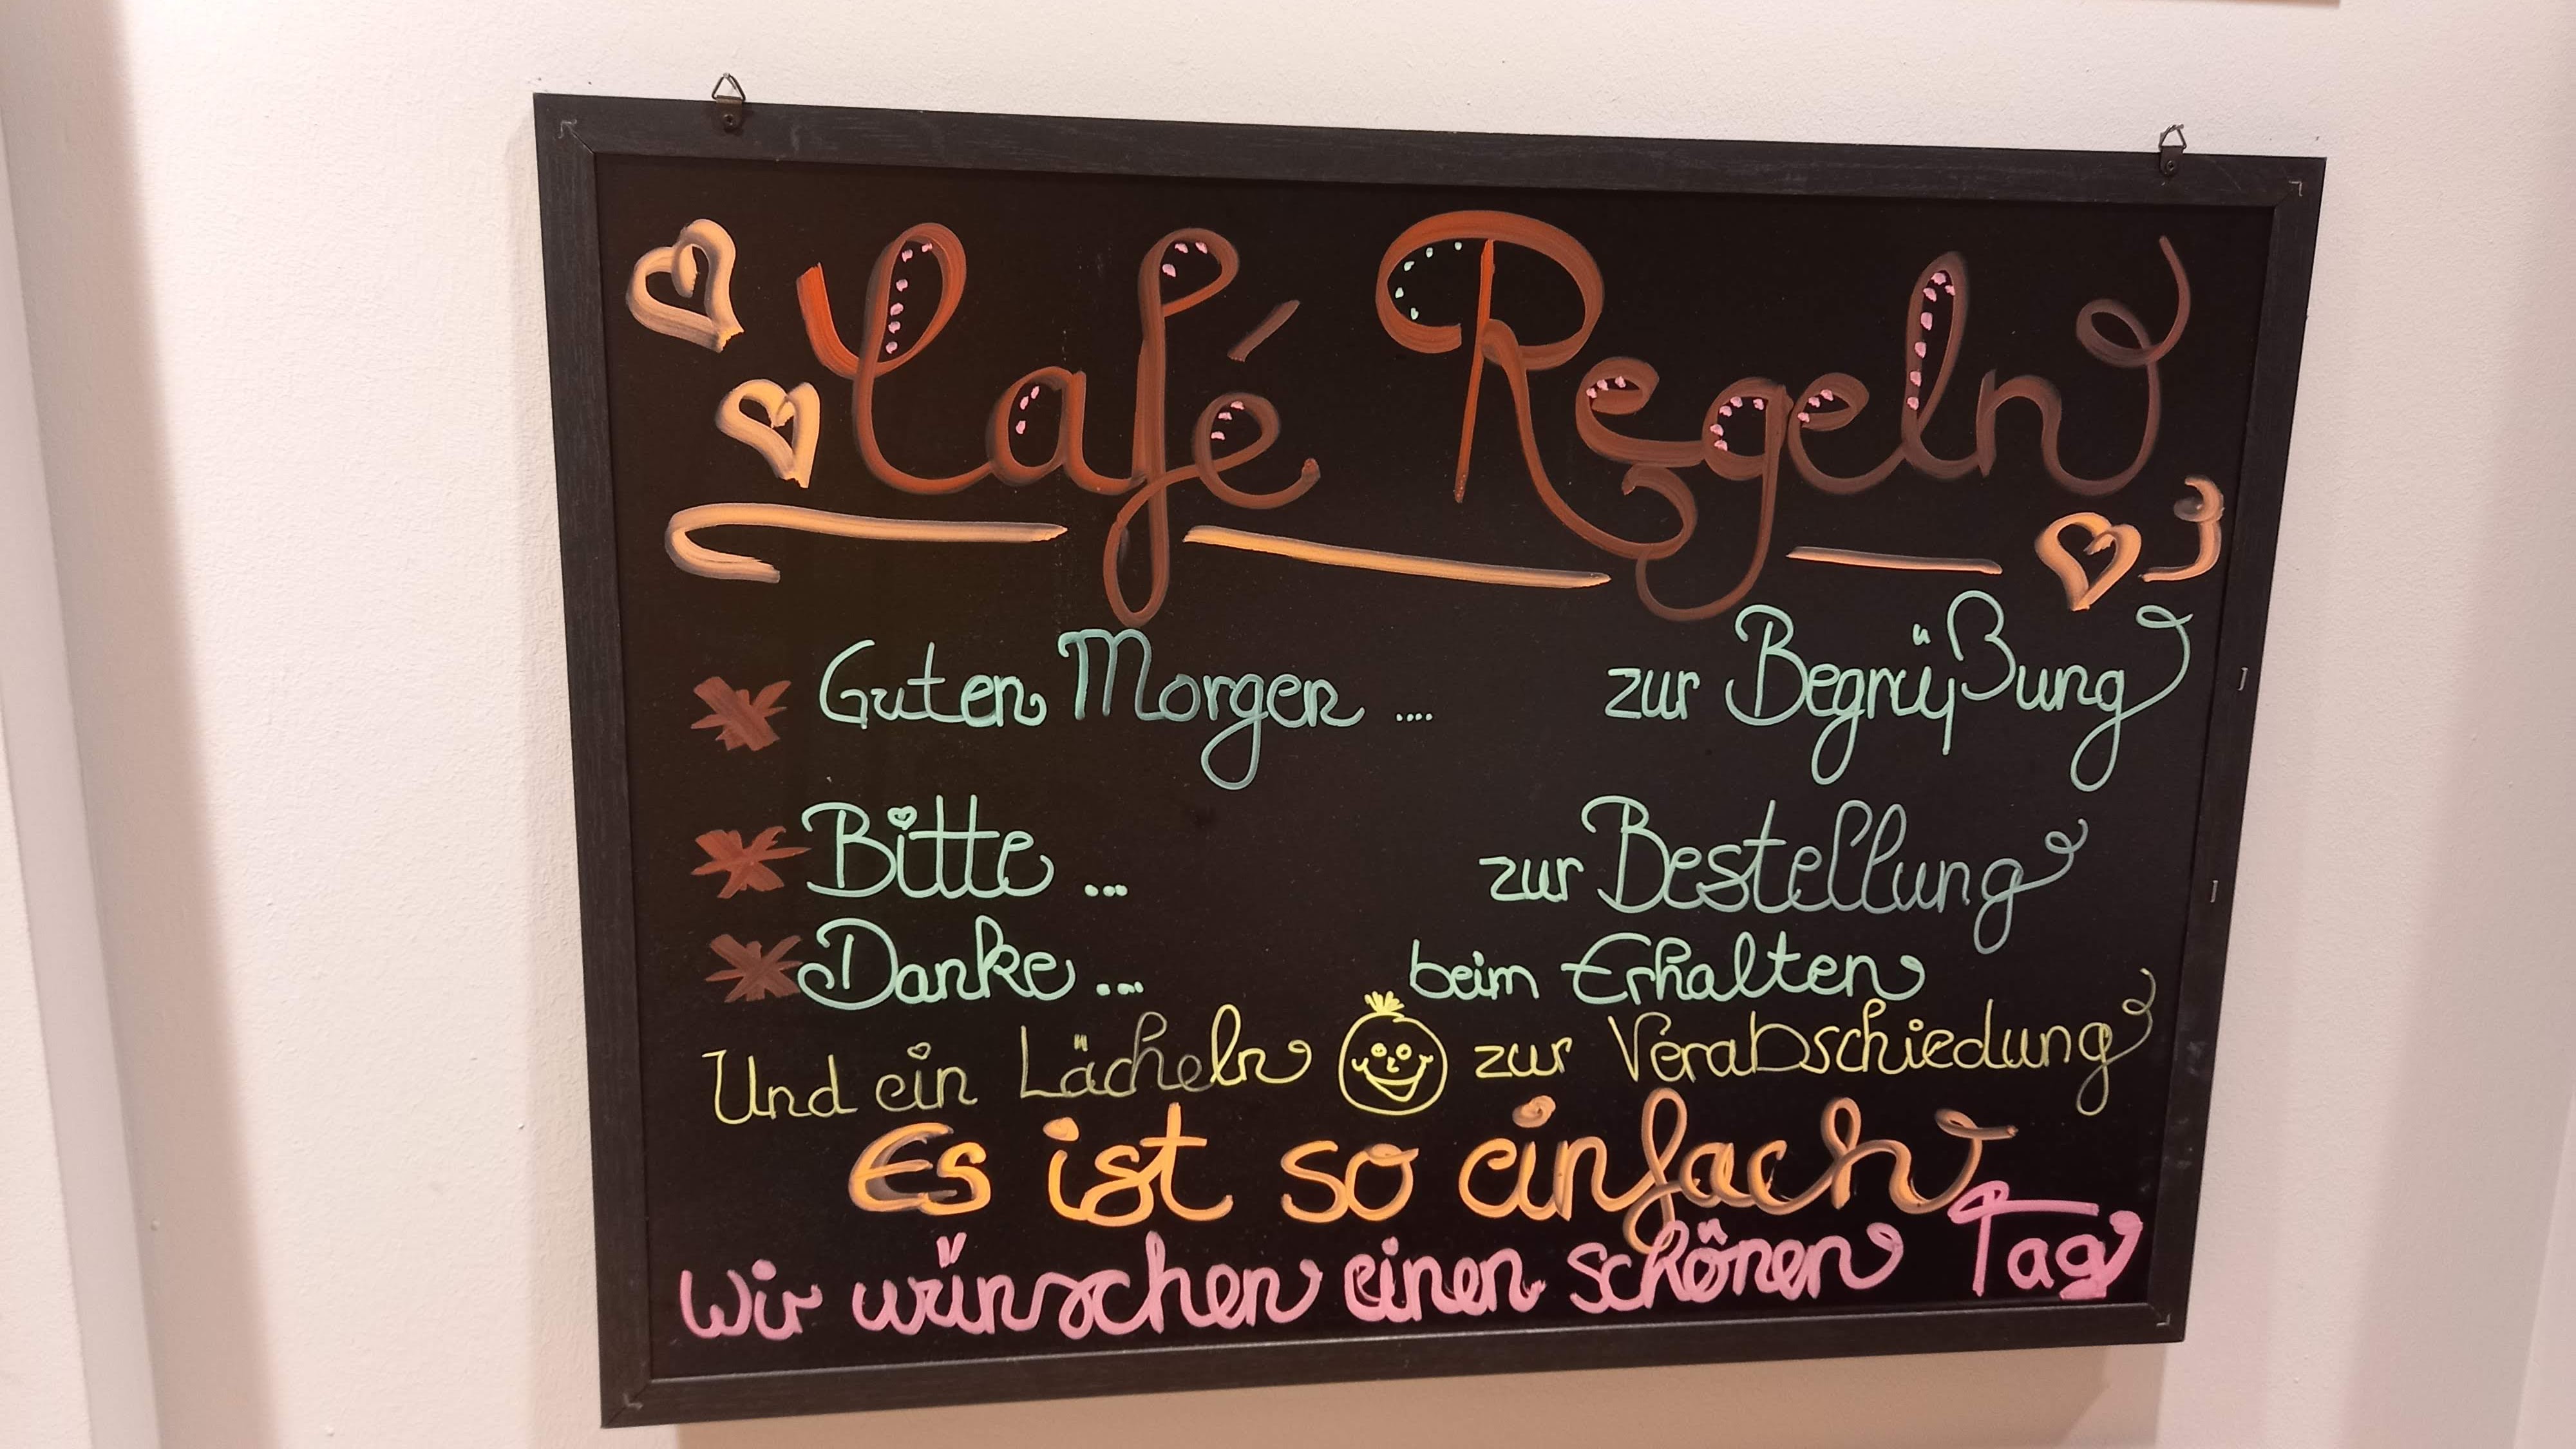 Café Regeln
Guten Morgen .... zur Begrüßung
Bitte ... zur Bestellung
Danke ... beim Erhalten
Und ein Lächeln zur Verabschiedung
Es ist so einfach
Wir wünschen einen schönen Tag